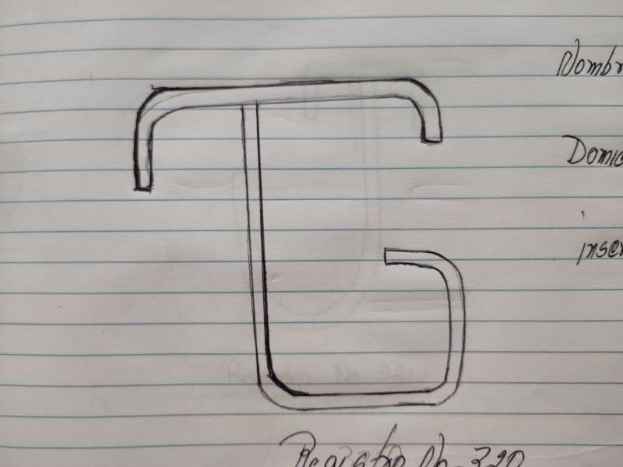 Nombr
Domic
inser
Registro No 320